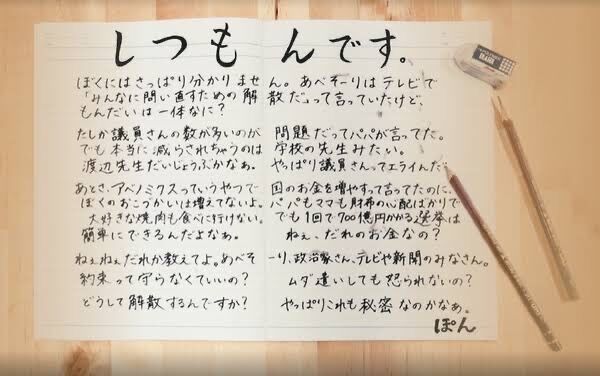 しつもんです。
ぼくにはさっぱり分かりません。あべそーりはテレビで
「みんなに問い直すための解散だ」って言っていたけど、
もんだいは一体なに?
たしか議員さんの数が多いのが問題だってパパが言ってた。
でも本当に減らされちゃうのは学校の先生みたい。
渡辺先生だいじょうぶかなぁ。やっぱり議員さんってエライんだ
あとさ、アベノミクスっていうやつで国のお金を増やすって言ってたのに、
ぼくのおこづかいは増えてないよ。パパもママも財布の心配ばかりで
大好きな焼肉も食べに行けない。でも1回で700億円かかる選挙は
簡単にできるんだよなぁ。ねぇ、だれのお金なの?
ねぇねぇだれか教えてよ。あべそーり、政治家さん、テレビや新聞のみなさん。
約束って守らなくていいの?ムダ遣いしても怒られないの?
どうして解散するんですか?やっぱりこれも秘密なのかなぁ。
ぽん